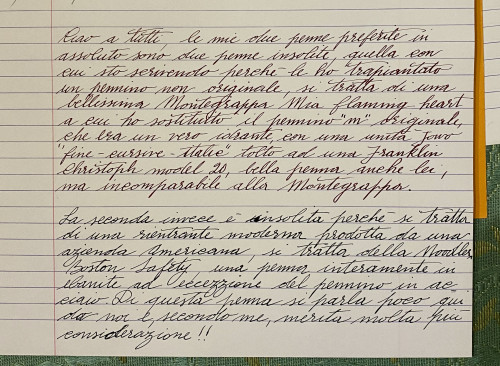 Ciao a tutti, le mie due penne preferite in
assoluto sono due penne insolite, quella con
cui sto scrivendo perché le ho trapiantato
un pennino non originale, si tratta di una
bellissima Montegrappa Mia flammy heart
a cui ho sostituito il pennino "m" originale,
che era un vero idrante, con una unità Jowo
"fine cursive italic" tolto ad una Franklin
Christoph model 20, bella penna anche lei,
ma incomparabile alla Montegrappa.
La seconda invece è insolita perche si tratta
di una rientrante moderna prodotta da una
azienda Americana, si tratta della Noodler
Boston Safety, una penna interamente in
ebanite ad eccezzione del pennino in ac-
ciaio. Di questa penna si parla poco qui
da noi e secondo me, merita molta più
considerazione!!